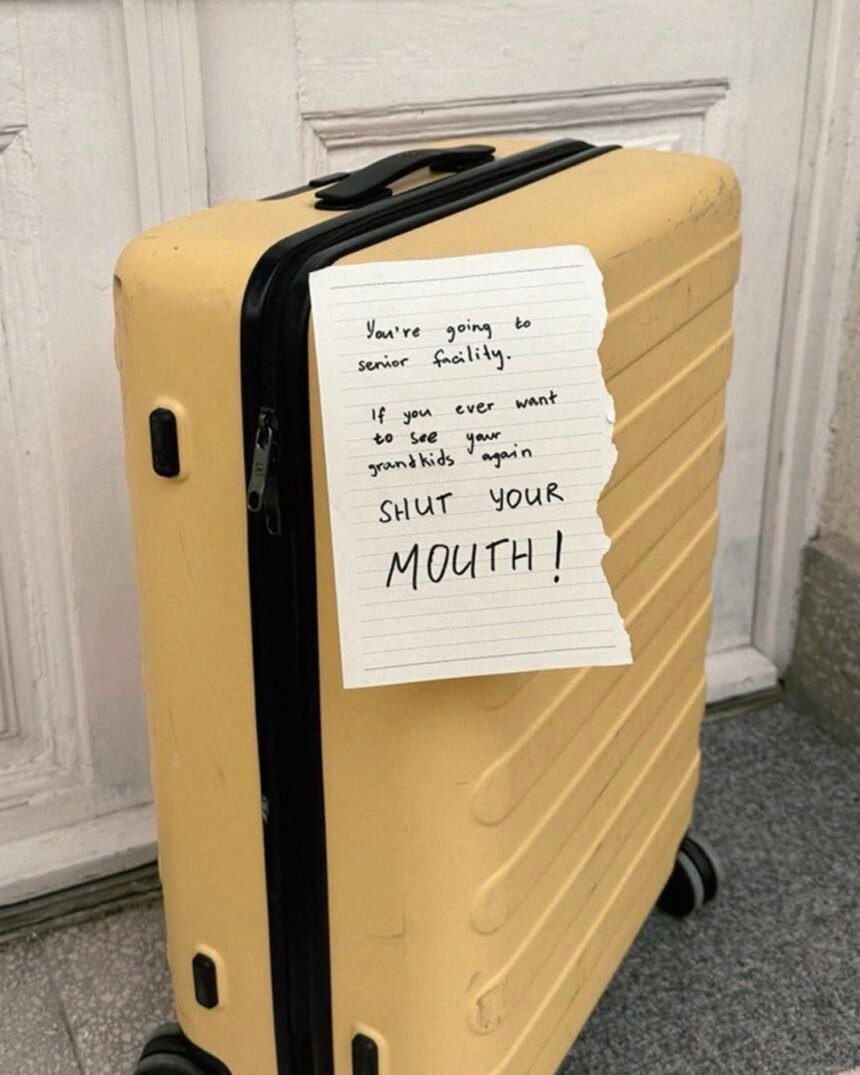 You're going to
senior facility.
If you ever want
to see your
grandkids again
SHUT YOUR
MOUTH!